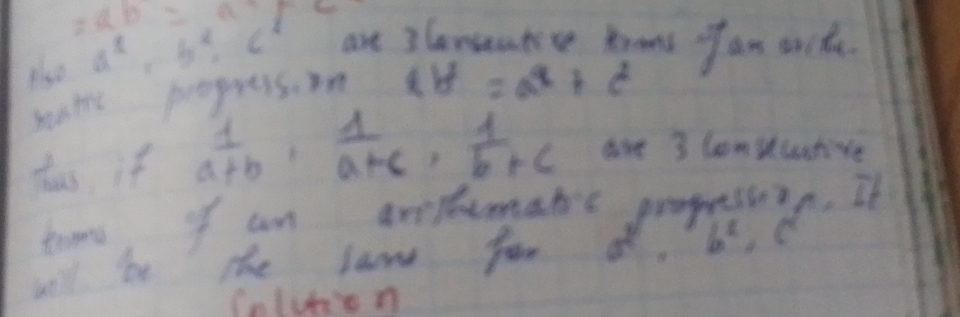 = ab = a² + c
Also a², b², c² are 3 Consecutive terms of an arith-
matic progression 2b² = a² + c²
thus, if 1/a+b, 1/a+c, 1/b+c are 3 consecutive
terms of an arithematic progression. It
will be the same for a², b², c²
Solution